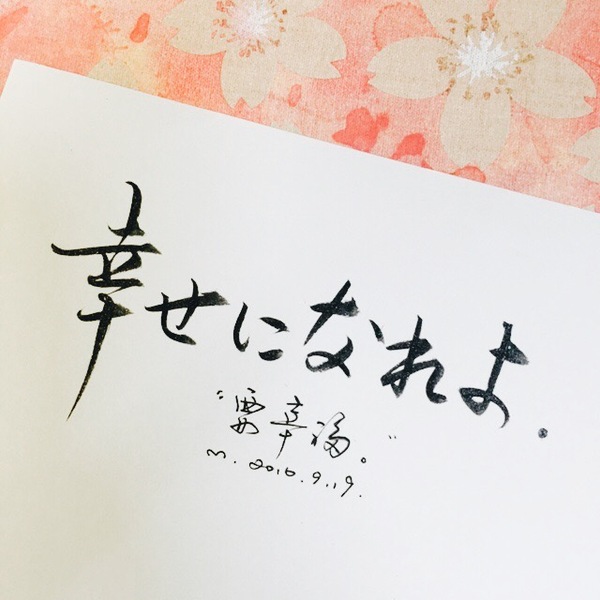 幸せになれよ.
"要幸福。"
m. 2016.9.19.